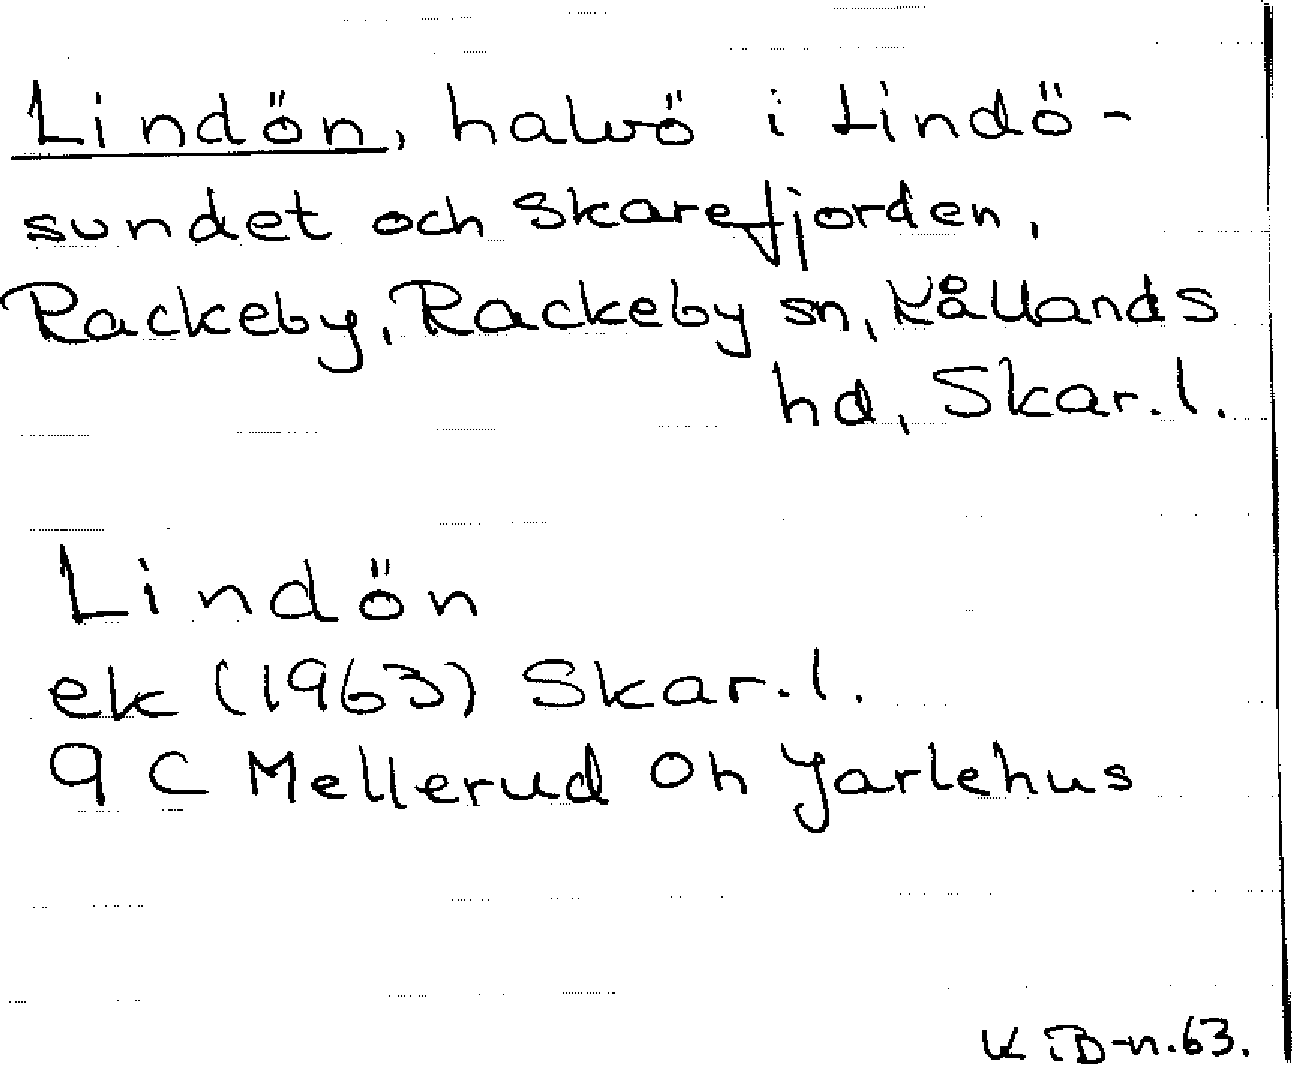 Lindön, halvö i Lindö-
sundet och Skarefjorden,
Rackeby, Rackeby sn, Kållands
hd, Skar. l.
Lindön
ek (1963) Skar. l.
9 C Mellerud 0h Jarlehus
-n. 63.